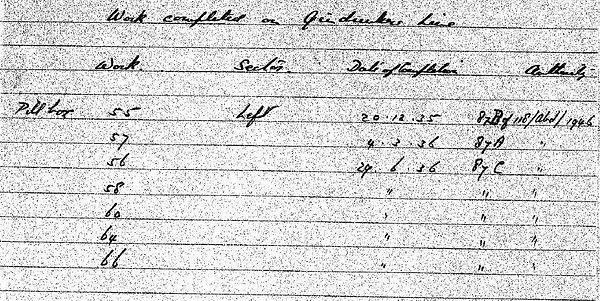 Work completed on Gindrinkers Line
Work. Sector. Date of Completion Authority
Pill box 55 Left 20.12.35 87B of 118/Abd/1946
57 4.3.36 87A "
56 29.6.36 87C "
58 " " "
60 " " "
64 " " "
66 " " "